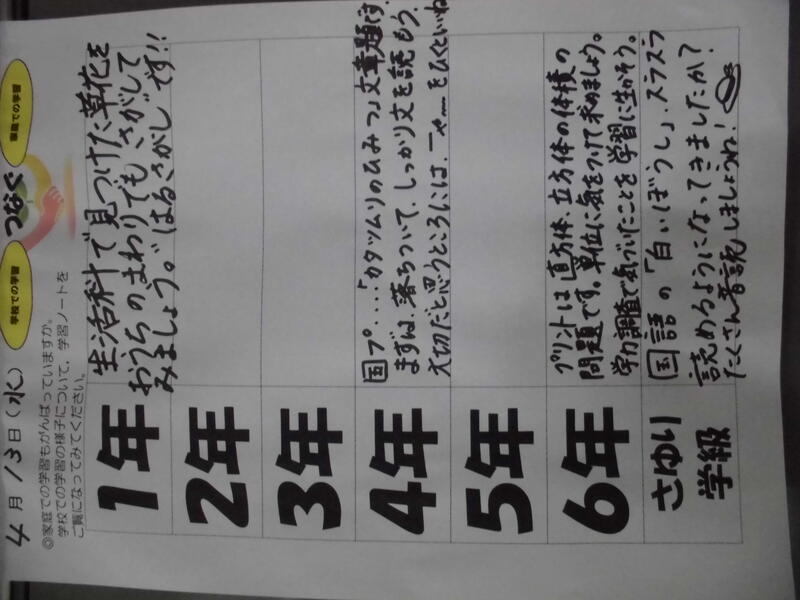 4月13日(水)
学校での学習
つなぐ
家庭での学習
◎家庭での学習もがんばっていますか。
学校での学習の様子について、学習ノートを
ご覧になってみてください。
1年
生活科で見つけた草花を
おうちのまわりでもさがして
みましょう。"はるさがし"です!!
2年
3年
4年
国プ…「カタツムリのひみつ」文章題です。
まずは、落ちついて、しっかり文を読もう。
大切だと思うところには、をひくといいね
5年
6年
プリントは直方体、立方体の体積の
問題です。単位に気をつけて求めましょう。
学力調査で気づいたことを学習に生かそう。
さゆり
学級
国語の「白いぼうし」、スラスラ
読めるようになってきましたか?
たくさん音読しましょうね!